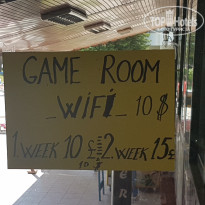 GAME ROOM
_WiFi_ 10$
1 WEEK 10£ 2 WEEK 15£
10 $